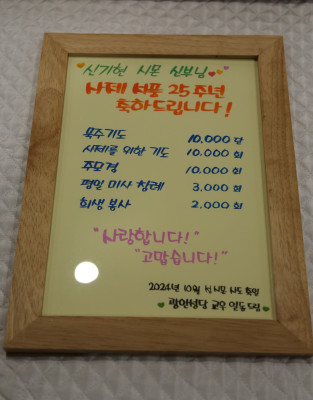 신기현 시몬 신부님
사제 서품 25주년
축하드립니다!
묵주기도 10,000 단
사제를 위한 기도 10,000 회
주모경 10,000 회
평일 미사 참례 3,000 회
희생 봉사 2,000 회
"사랑합니다!"
"고맙습니다!"
2024년 10월 성 시몬 사도 축일
교우 일동드림